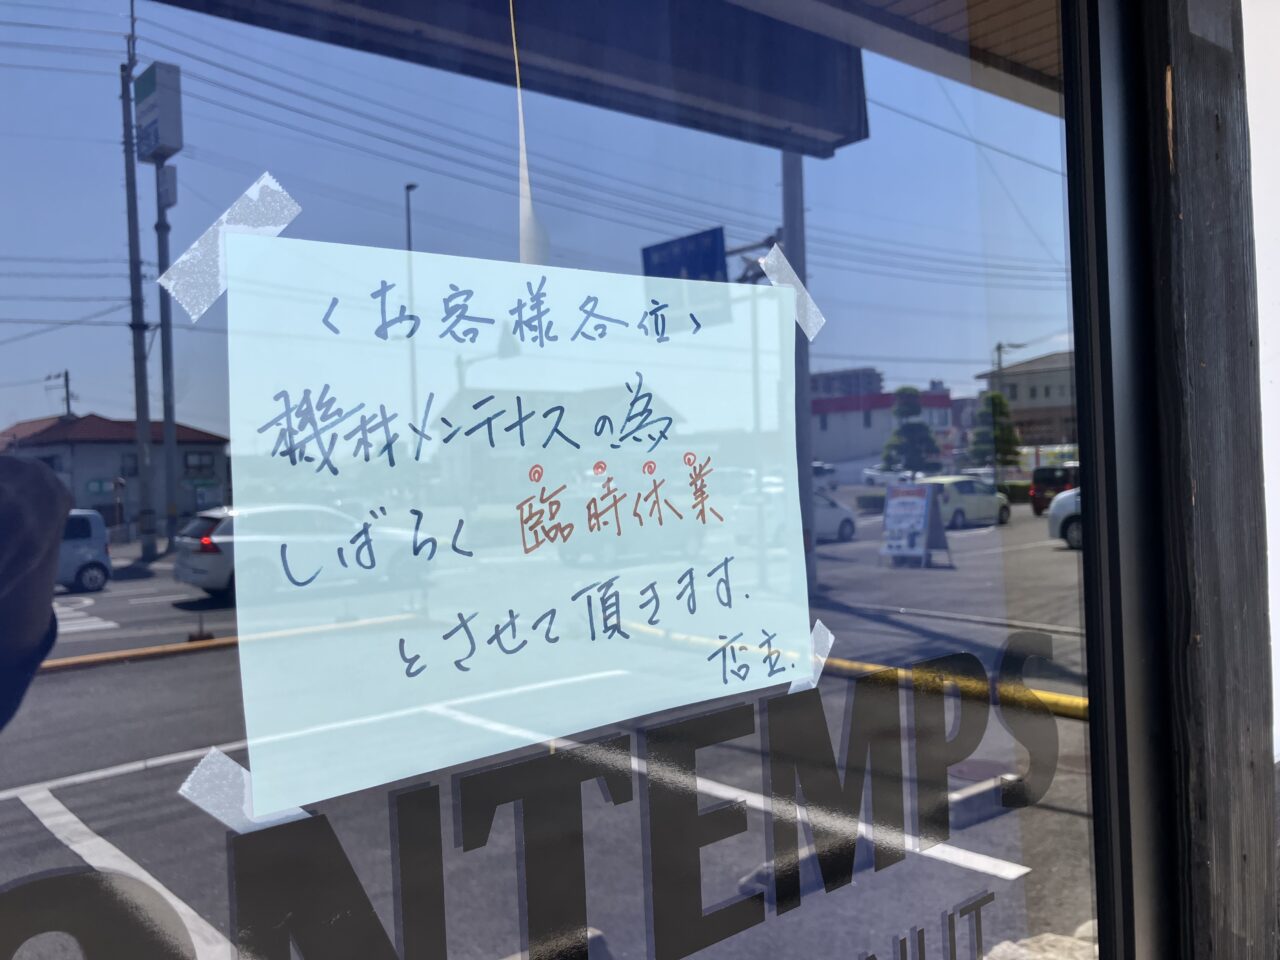 <お客様各位>
機材メンテナスの為
しばらく臨時休業
とさせて頂きます.
店主.
ONTEMPS